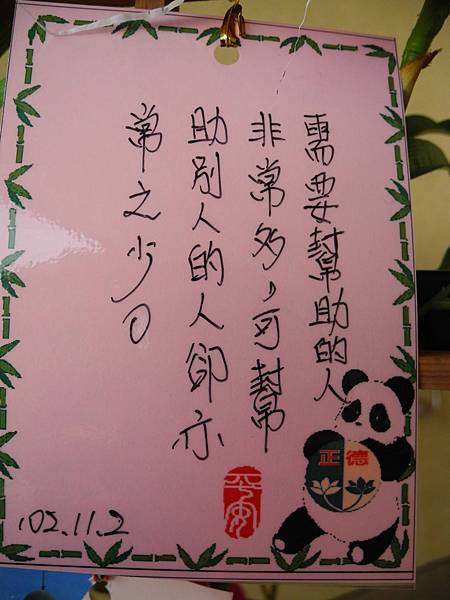 需要幫助的人
非常多，可幫
助別人的人卻亦
常之少。
正德
平安
102.11.2